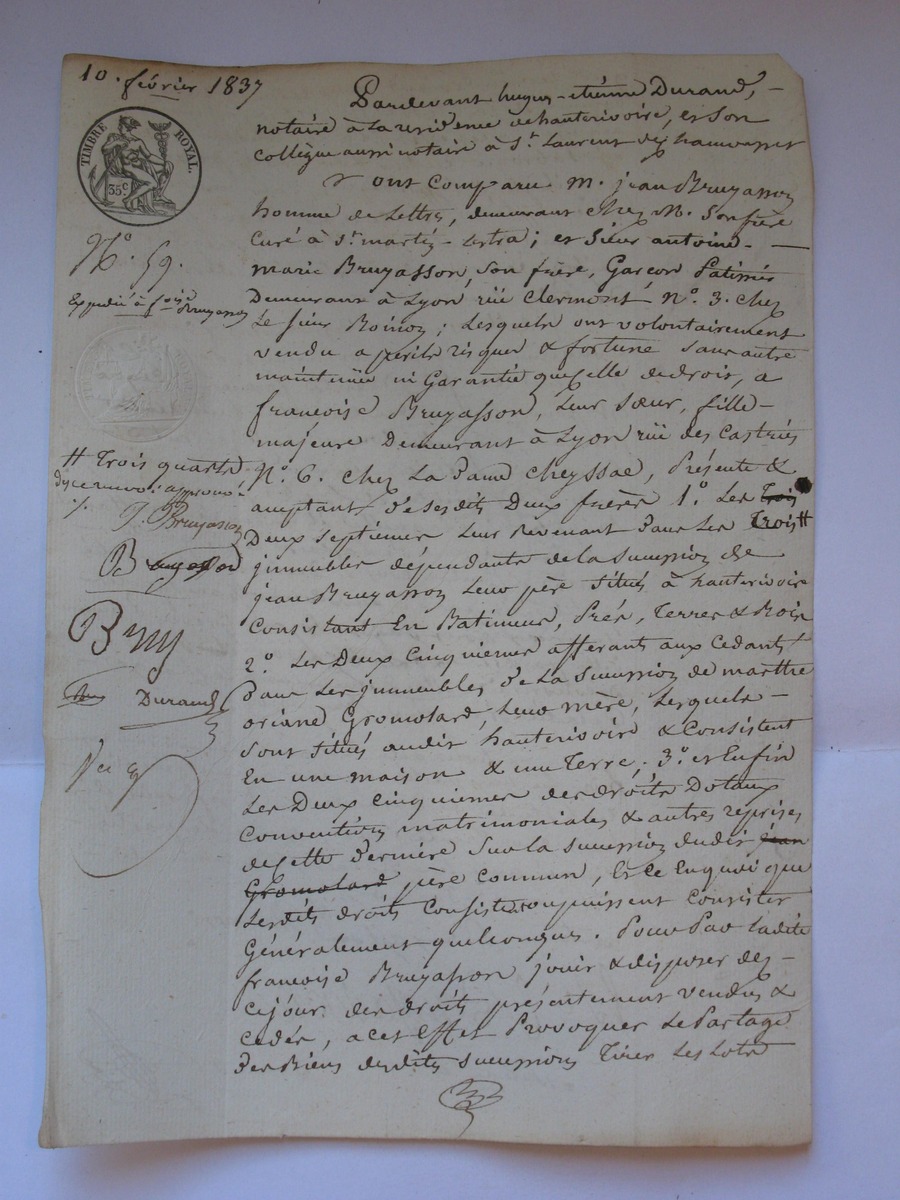 10. février 1837
TIMBRE ROYAL.
35c
N.o 59.
Expédié à f.oise Bruyasson
# Trois quarts
approuvé
J. Bruyasson
Bruyasson
Bruy
Durand
Pardevant hugues-étienne Durand,
notaire à La residence de hauterivoire, et Son
collègue aussi notaire à S.t Laurent de chamousset
ont Comparu M. jean Bruyasson
homme de Lettres, demeurant chez M. Son frère
curé à S.t martin-Lestra; et Sieur antoine-
marie Bruyasson, son frère, Garçon Patissier
Demeurant à Lyon rüe Clermont n.o 3. chez
Le sieur Boinon; Lesquels ont volontairement
vendu a perils risques & fortune sans autre
maintenüe ni Garantie que celle de droit, a
francoise Bruyasson, Leur Sœur, fille-
majeure Demeurant à Lyon rüe des Castries
N.o 6. chez La Dame Cheyssac, Présente &
acceptant de sesdits Deux frères 1.o Les Trois
Deux septiemes Leur Revenant Dans Les Trois #
jmmeubles dépendants de la succession de
jean Bruyasson Leur père situés à hauterivoire
Consistant En Batiments, Prés, Terres & Bois
2.o Les Deux Cinquiemes afferants aux Cedants
Dans Les jmmeubles de La succession de marthe
oriane Gromolard, Leur mère, Lesquels-
sont situés audit hauterivoire & Consistent
En une maison & une Terre; 3.o et Enfin
Les Deux Cinquiemes des droits Dotaux
Conventions matrimoniales & autres reprises
de cette Dernière Sur la succession dudit jean
Gromolard père commun, Et ce En quoi que
Lesdits droits Consistent ou puissent Consister
Généralement quelconques. Pour Par Ladite
francoise Bruyasson jouir & disposer dès-
ce jour des droits présentement vendus &
cedés, a cet Effet Provoquer Le Partage
Des Biens desdites successions Tirer Les Lots